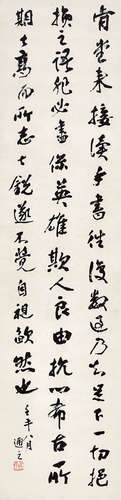 肯堂来接读手书往复数过乃知足下一切挹
损之谈犯必尽保英雄欺人良由抗心希古所
期者高而所志者锐遂不觉自视欿然也
壬午八月